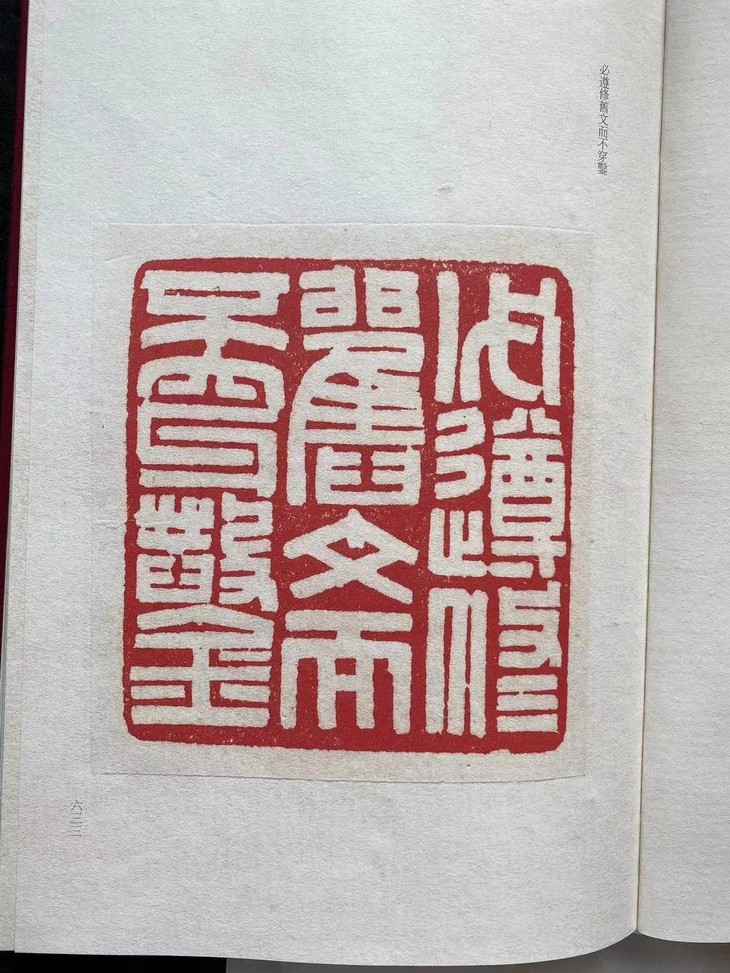 必遵修舊文而不穿鑿
必遵修
舊文而
不穿鑿